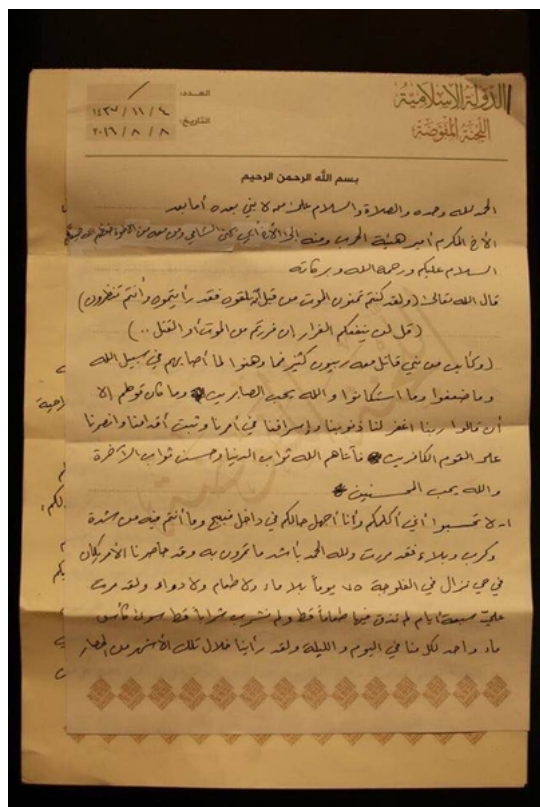 الدولة الإسلامية
اللجنة المفوضة
العدد: /
التاريخ: ٤ / ١١ / ١٤٣٧
٨ / ٨ / ٢٠١٦
بسم الله الرحمن الرحيم
الحمد لله وحده والصلاة والسلام على من لا نبي بعده أما بعد
الأخ المكرم أمير هيئة الحرب ومنه إلى الأخ أبي يحيى الشامي ومن معه من الأخوة حفظهم الله جميعاً
السلام عليكم ورحمة الله وبركاته
قال الله تعالى: (ولقد كنتم تمنون الموت من قبل أن تلقوه فقد رأيتموه وأنتم تنظرون)
(قل لن ينفعكم الفرار إن فررتم من الموت أو القتل ..)
(وكأين من نبي قاتل معه ربيون كثير فما وهنوا لما أصابهم في سبيل الله
وما ضعفوا وما استكانوا والله يحب الصابرين وما كان قولهم إلا
أن قالوا ربنا اغفر لنا ذنوبنا وإسرافنا في أمرنا وثبت أقدامنا وانصرنا
على القوم الكافرين فآتاهم الله ثواب الدنيا وحسن ثواب الآخرة
والله يحب المحسنين
١- لا تحسبوا أني أكلمكم وأنا أجهل حالكم في داخل منبج وما أنتم فيه من شدة
وكرب وبلاء فقد مررت ولله الحمد بأشد ما تمرون به وقد حاصرنا الأمريكان
في حي نزال في الفلوجة ٧٥ يوماً بلا ماء ولا طعام ولا دواء ولقد مرت
علي سبعة أيام لم نذق فيها طعاماً قط ولم نشرب شراباً قط سوى كأس
ماء واحد لكل منا في اليوم والليلة ولقد رأينا خلال تلك الأشهر من الحصار